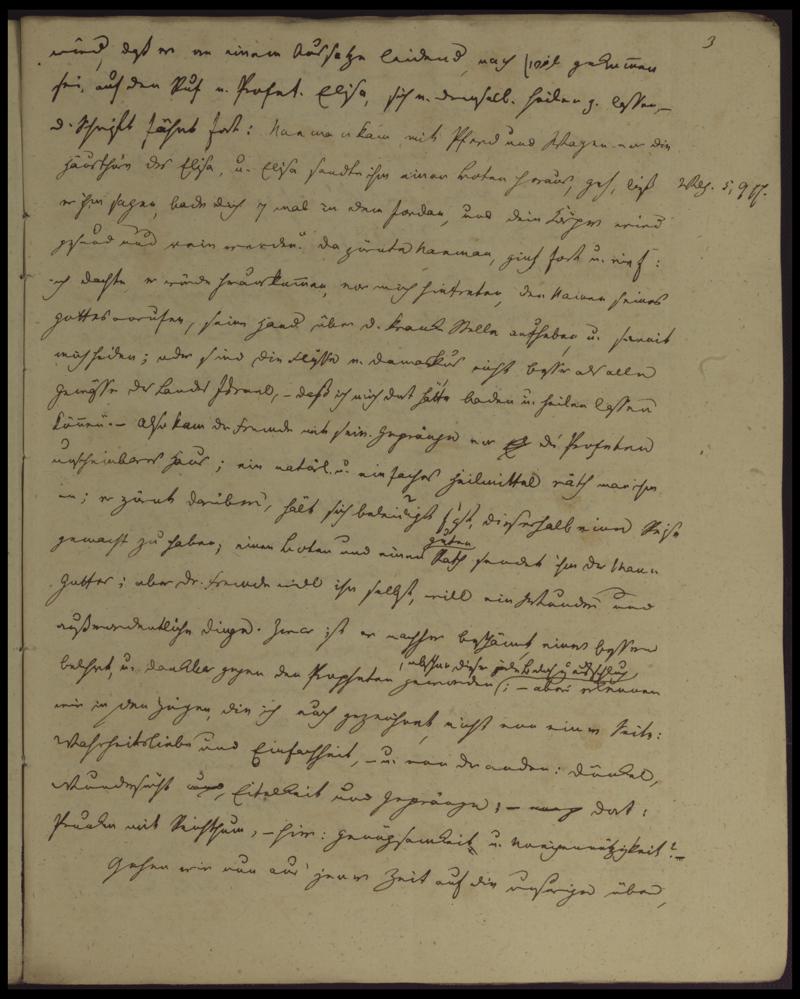 3
wird, daß er an einem Aussatze leidend, nach gekommen
sei, auf den Ruf v. Profet. Elisa, sich v. demselb. heilen z. lassen, –
d. Schrift fährt fort: Naeman kam mit Pferd und Wagen vor die
Hausthür des Elisa, u. Elisa sandte ihm einen Boten heraus, geh, ließ
er ihm sagen, bade dich 7 mal in dem Jordan, und dein Körper wird
gesund und rein werden. Da zürnte Naeman, ging fort u. rief:
ich dachte er würde herauskommen, vor mich hintreten, den Namen seines
Gottes anrufen, seine Hand über d. kranke Stelle aufheben u. somit
mich heilen; oder sind die Flüsse v. Damaskus nicht besser als alle
Gewässer des Landes Israel, – daß ich mich dort hätte baden u. heilen lassen
können. – Also kam der Fremde mit sein. Gepränge vor des Profeten
unscheinbares Haus; ein natürl. u. einfaches Heilmittel räth man ihm
an; er zürnt darüber, hält sich beleidigt, dieserhalb eine Reise
gemacht zu haben; einen Boten und einen guten Rath sendet ihm der Mann
Gottes; aber der Fremde will ihn selbst, will ein Wunder und
außerordentliche Dinge. Zwar ist er nachher beschämt, eines bessern
belehrt, u. dankbar gegen den Propheten geworden, – aber erkennen
wir in den Zügen, die ich euch gezeichnet, nicht von einer Seite:
Wahrheitsliebe und Einfachheit, – u. von der anderen: Dünkel,
Wundersucht, Eitelkeit und Gepränge; – dort:
Prunken mit Reichthum, – hier: Genügsamkeit u. Uneigennützigkeit? –
Gehen wir nun aus jener Zeit auf die unsrige über,
5, 9 ff.